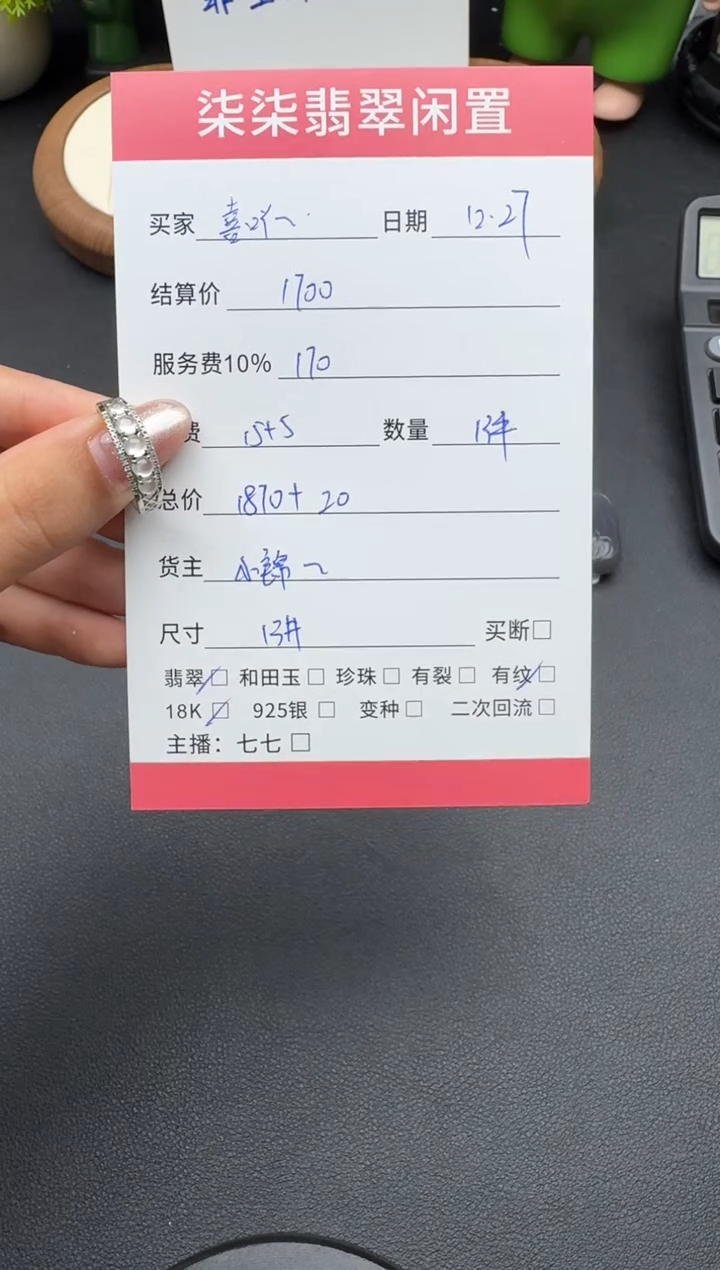 柒柒翡翠闲置
买家 喜吖~ 日期 12.27
结算价 1700
服务费10% 170
费 15+5 数量 1件
总价 1870+20
货主 小锦~
尺寸 13# 买断□
翡翠□ 和田玉□ 珍珠□ 有裂□ 有纹□
18K□ 925银□ 变种□ 二次回流□
主播：七七□